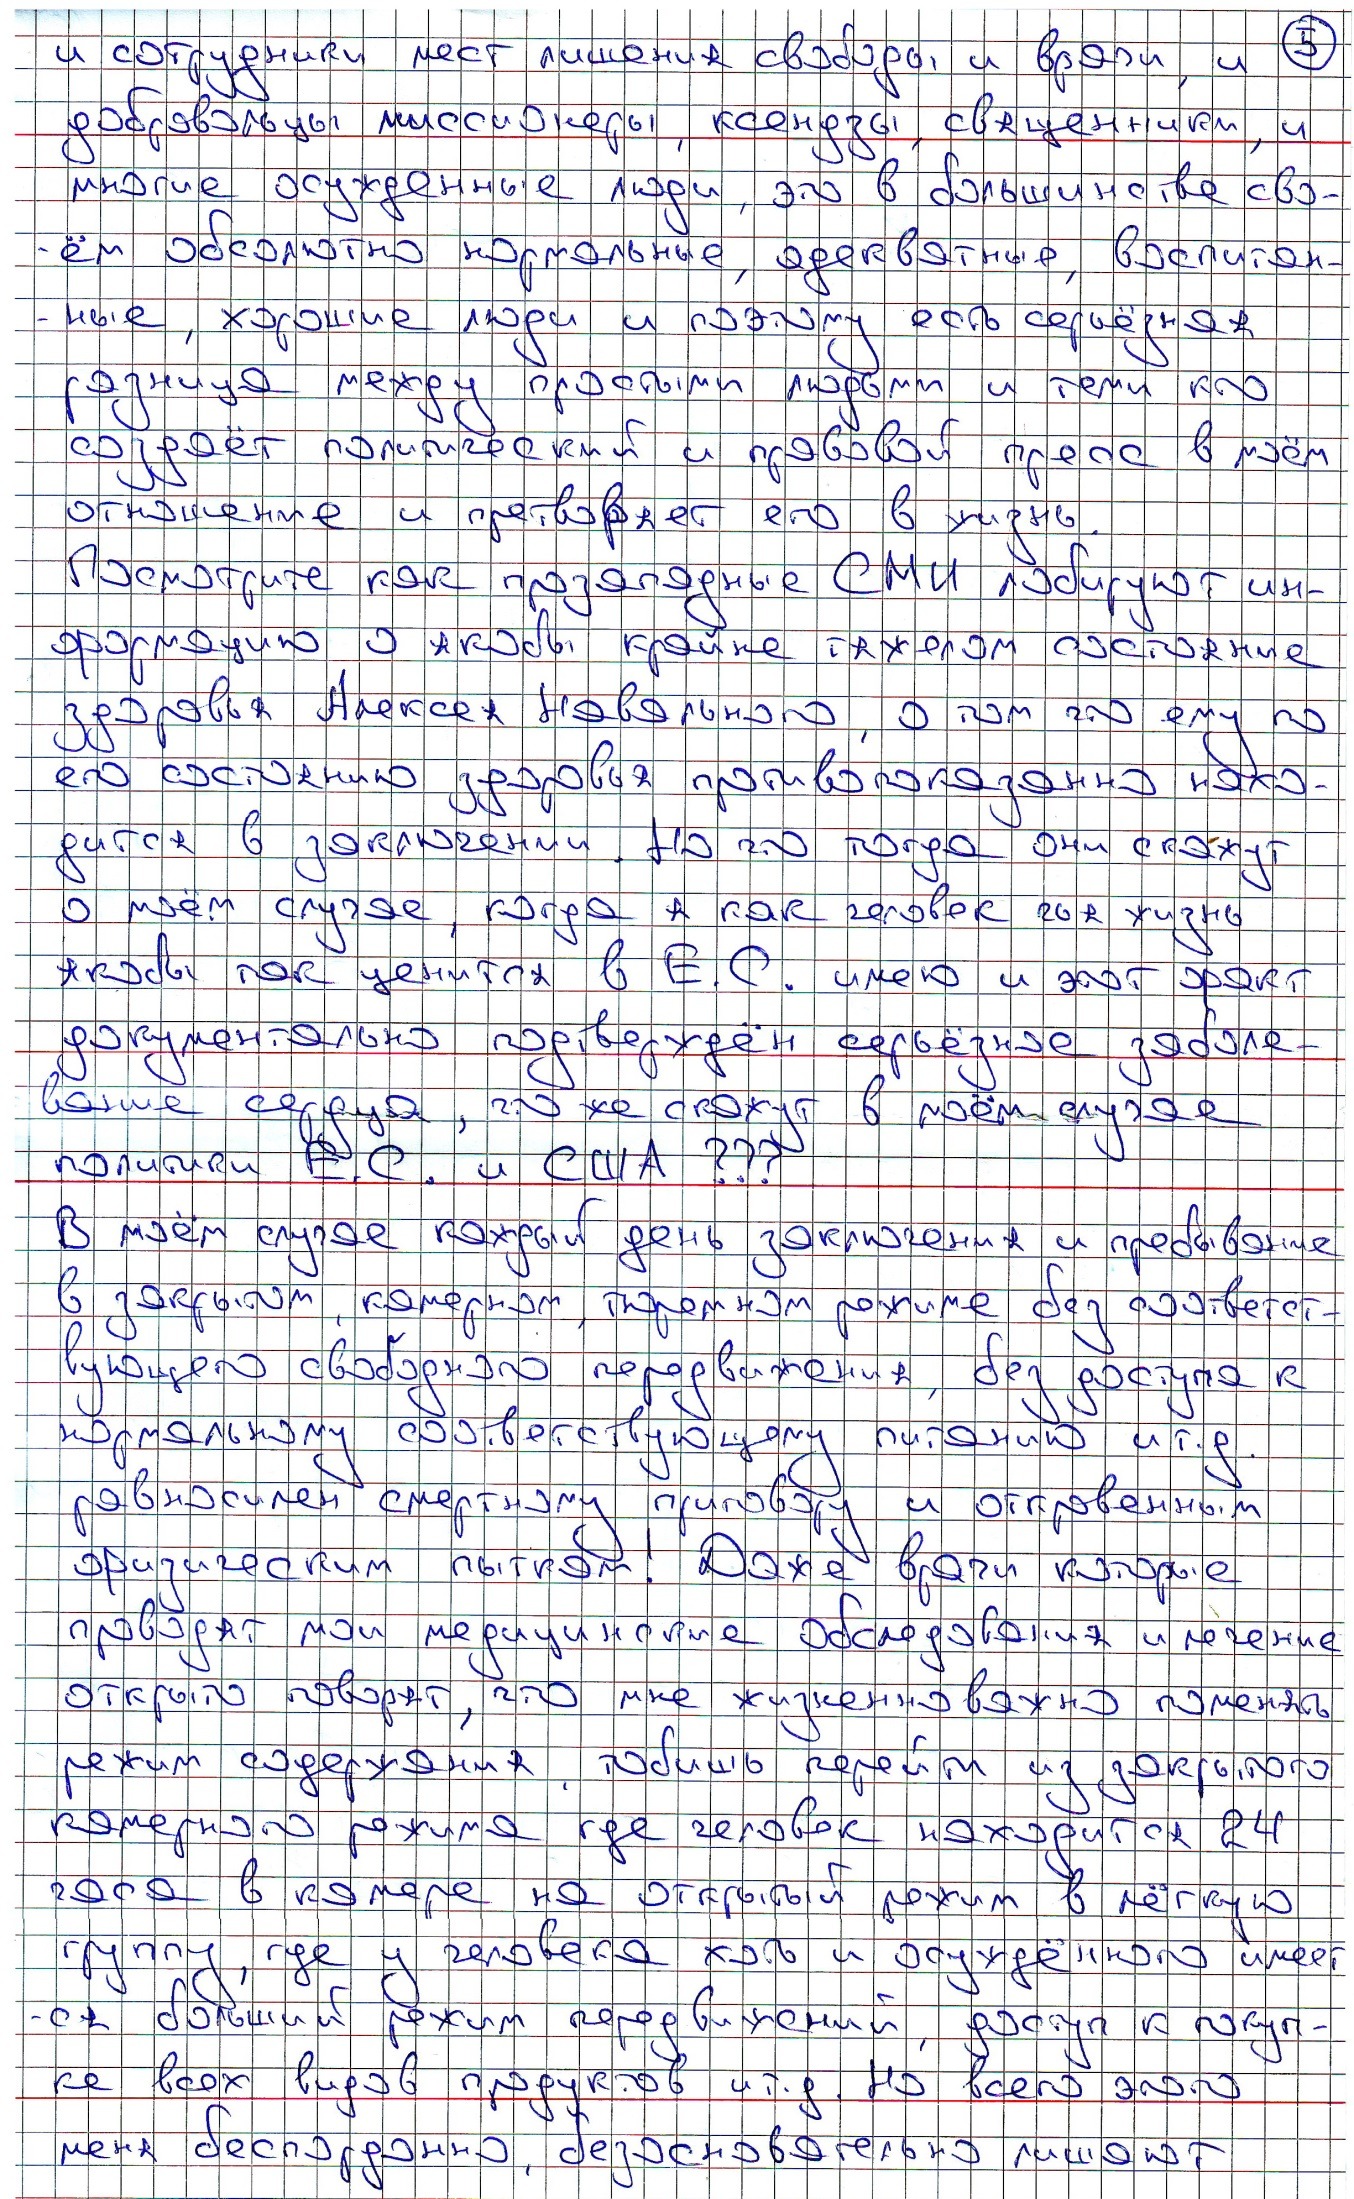 5
и сотрудники мест лишения свободы и врачи, и
добровольцы миссионеры, ксендзы, священники, и
многие осужденные люди, это в большинстве сво-
-ём обсолютно нормальные, адекватные, воспитан-
-ные, хорошие люди и поэтому есть серьёзная
разница между простыми людьми и теми кто
создаёт политический и правовой пресс в моём
отношение и претворяет его в жизнь.
Посмотрите как прозападные СМИ лобируют ин-
формацию о якобы крайне тяжелом состояние
здоровья Алексея Навального, о том что ему по
его состоянию здоровья противопоказанно нахо-
дится в заключении. Но что тогда они скажут
о моём случае, когда я как человек чья жизнь
якобы так ценится в Е.С. имею и этот факт
документально подтверждён серьёзное заболе-
вание сердца, что же скажут в моём случае
политики Е.С. и США ???
В моём случае каждый день заключения и пребывание
в закрытом, камерном, тюремном режиме без соответст-
вующего свободного передвижения, без доступа к
нормальному соответствующему питанию и т.д.
равносилен смертному приговору и откровенным
физическим пыткам! Даже врачи которые
проводят мои медицинские обследования и лечение
открыто говорят, что мне жизненноважно поменять
режим содержания, тобишь перейти из закрытого
камерного режима где человек находится 24
часа в камере на открытый режим в лёгкую
группу, где у человека хоть и осуждённого имеет
-ся больший режим передвижений, доступ к покуп-
ке всех видов продуктов и т.д. Но всего этого
меня беспордонно, безосновательно лишают